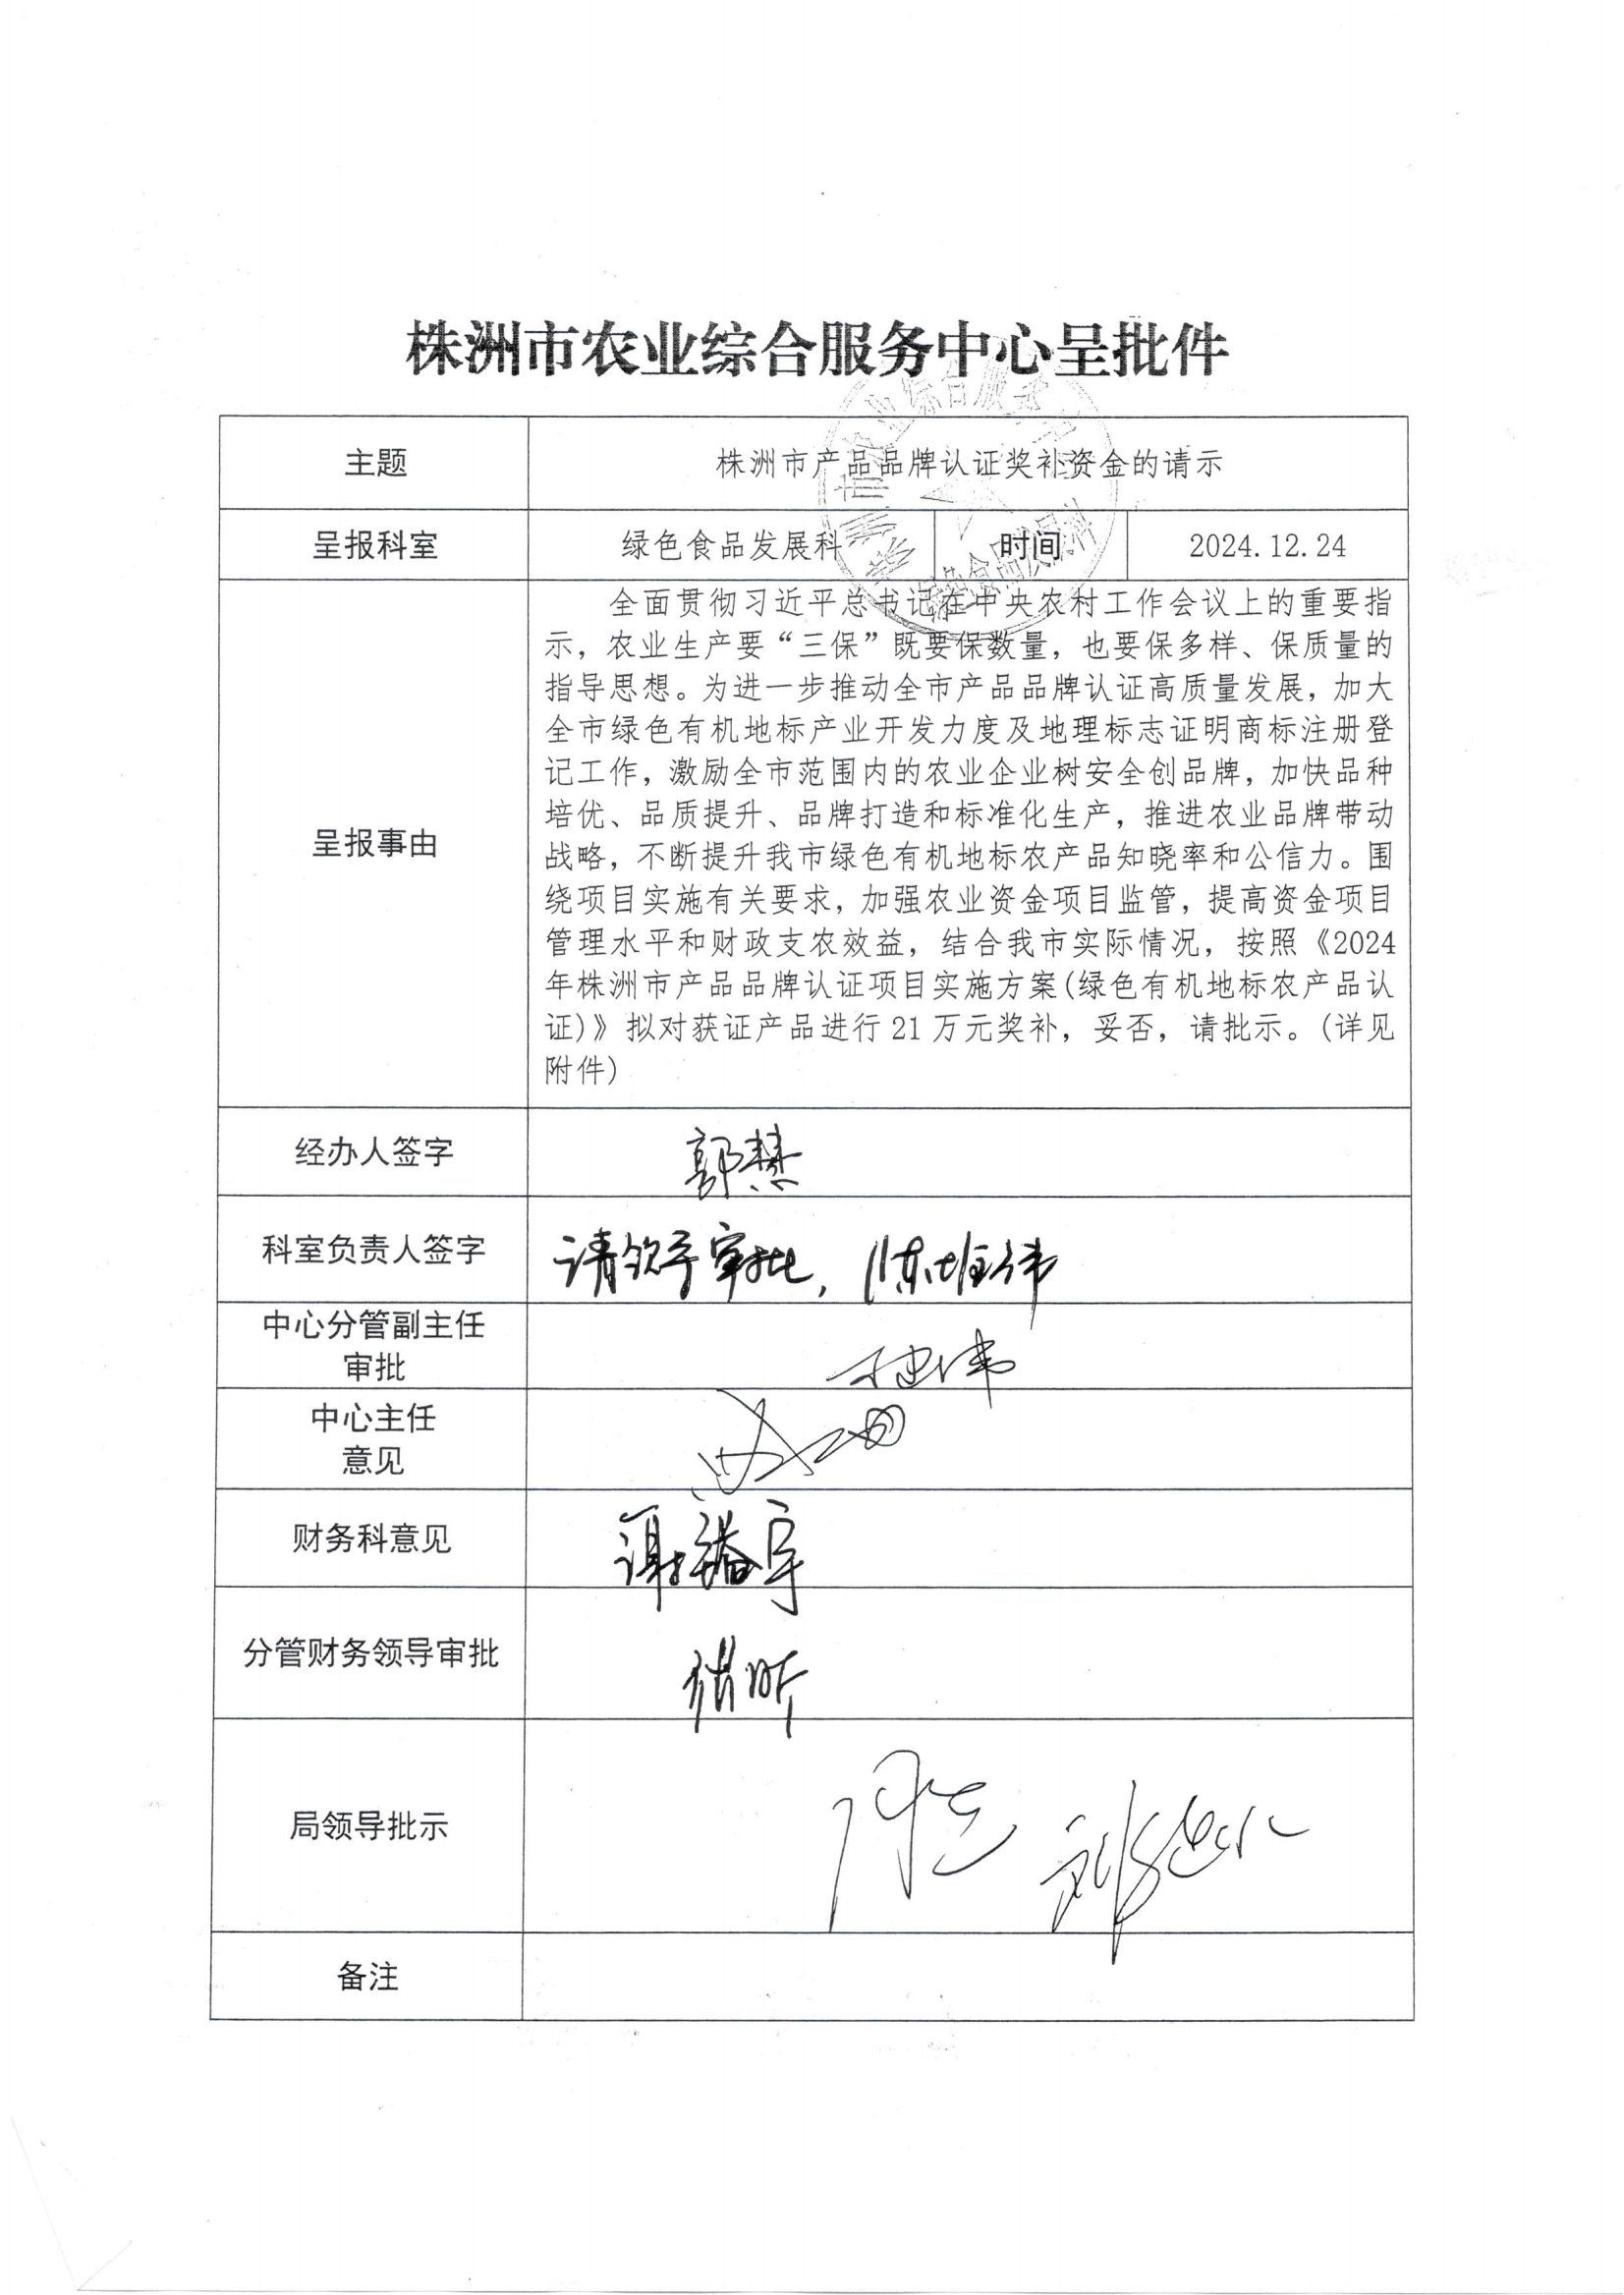 株洲市农业综合服务中心呈批件
主题 株洲市产品品牌认证奖补资金的请示
呈报科室 绿色食品发展科 时间 2024.12.24
呈报事由
全面贯彻习近平总书记在中央农村工作会议上的重要指
示，农业生产要“三保”既要保数量，也要保多样、保质量的
指导思想。为进一步推动全市产品品牌认证高质量发展，加大
全市绿色有机地标产业开发力度及地理标志证明商标注册登
记工作，激励全市范围内的农业企业树安全创品牌，加快品种
培优、品质提升、品牌打造和标准化生产，推进农业品牌带动
战略，不断提升我市绿色有机地标农产品知晓率和公信力。围
绕项目实施有关要求，加强农业资金项目监管，提高资金项目
管理水平和财政支农效益，结合我市实际情况，按照《2024
年株洲市产品品牌认证项目实施方案(绿色有机地标农产品认
证)》拟对获证产品进行21万元奖补，妥否，请批示。(详见
附件)
经办人签字 郭慧
科室负责人签字 请 审批，陈
中心分管副主任
审批
中心主任
意见
财务科意见 谢
分管财务领导审批
局领导批示
备注